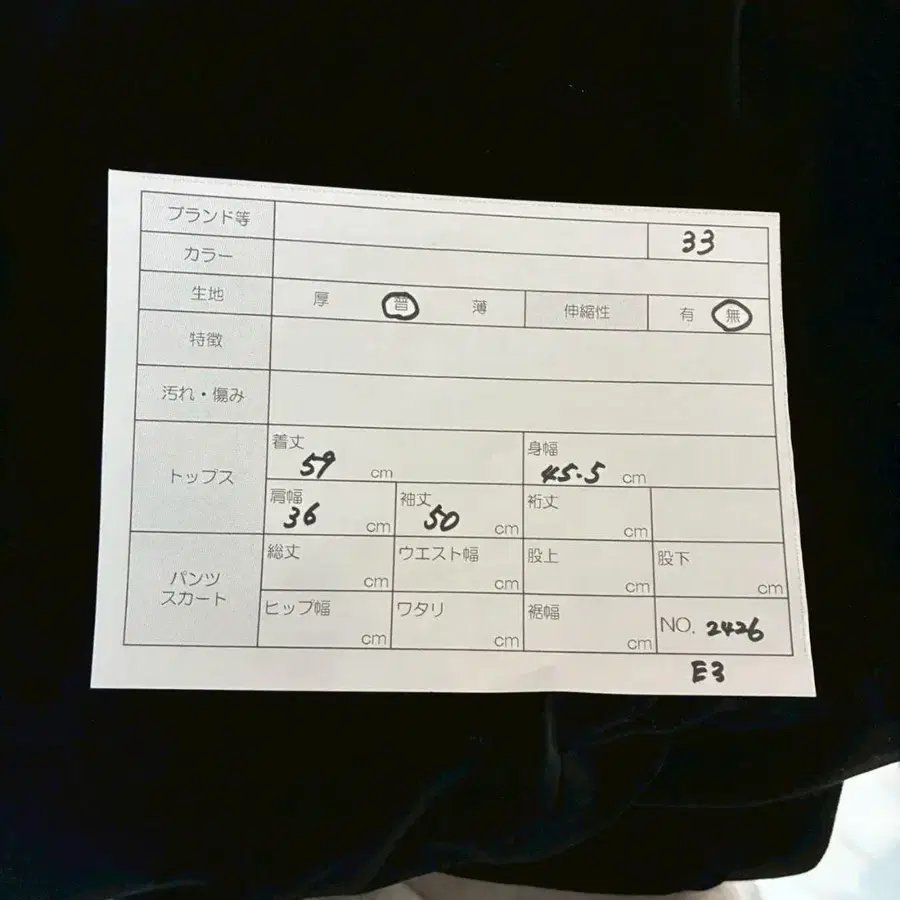 ブランド等 33
カラー
生地 厚 普 薄 伸縮性 有 無
特徴
汚れ・傷み
トップス
着丈 59 cm 身幅 45.5 cm
肩幅 36 cm 袖丈 50 cm 裄丈 cm
パンツ
スカート
総丈 cm ウエスト幅 cm 股上 cm 股下 cm
ヒップ幅 cm ワタリ cm 裾幅 cm NO. 2426
E3